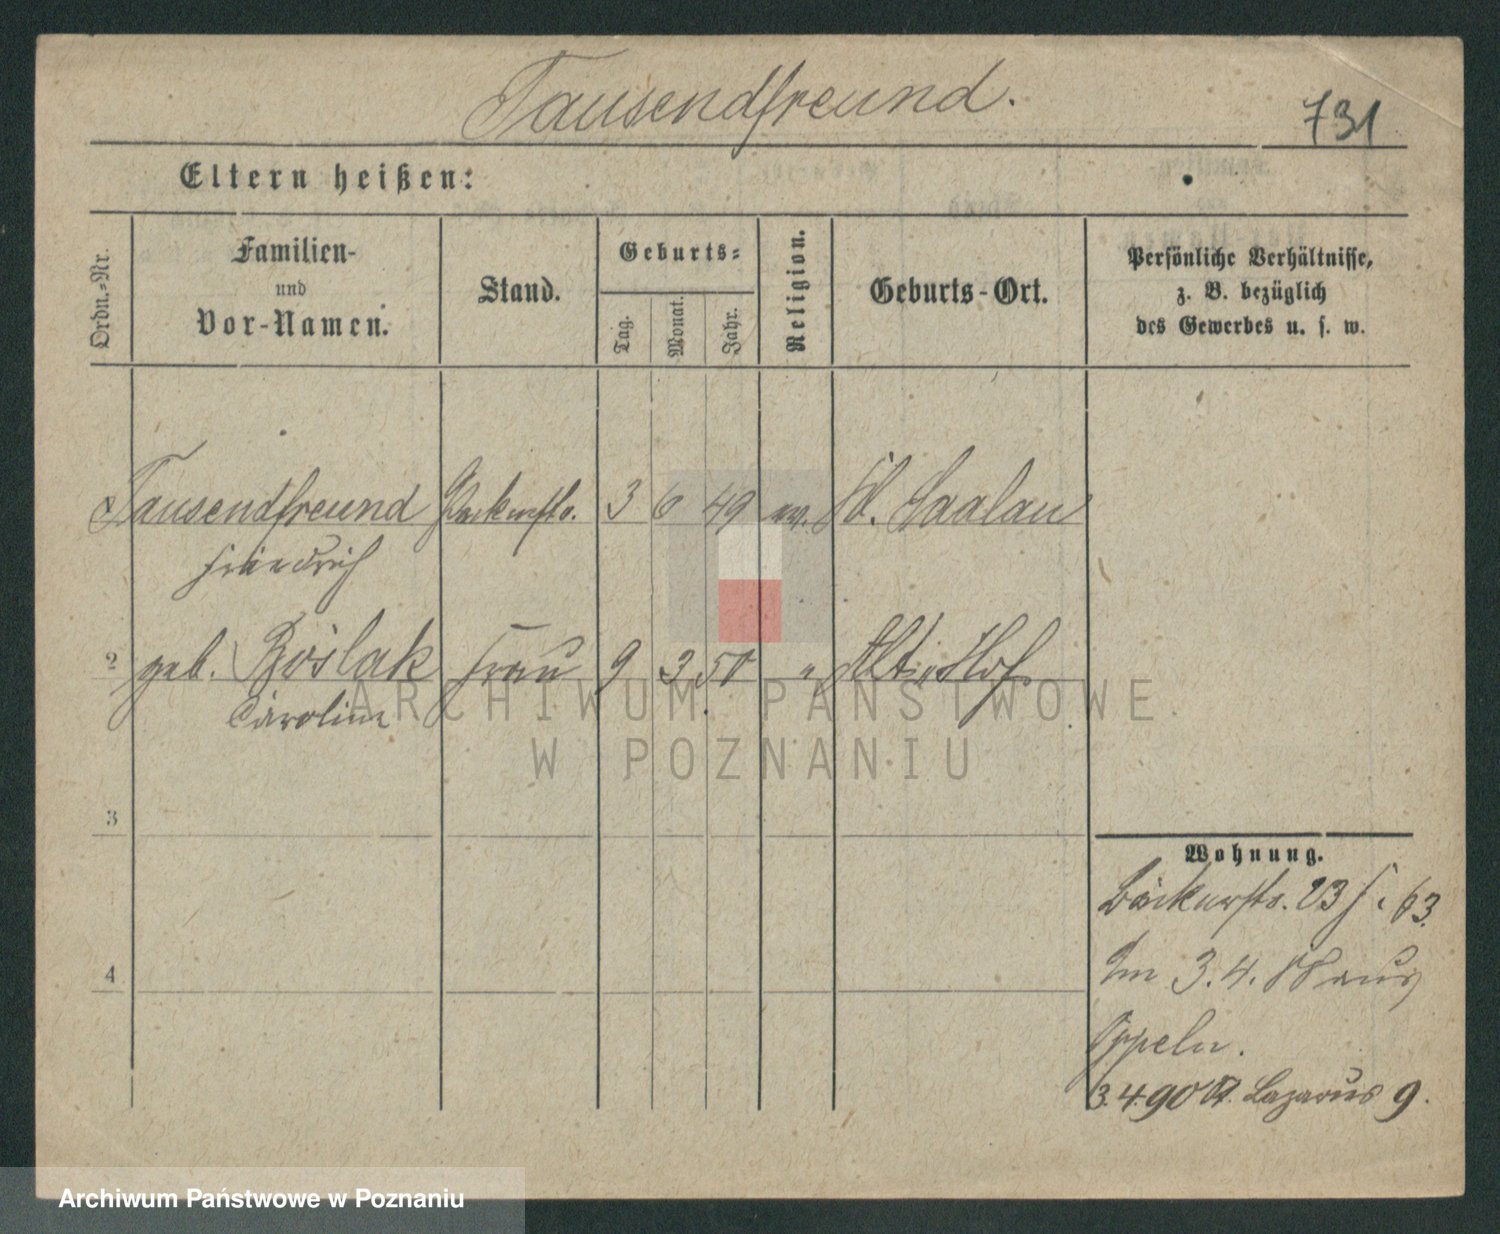 Tausendfreund.
731
Eltern heißen:
Ordn.-Nr.
Familien-
und
Vor-Namen.
Stand.
Geburts-
Tag.
Monat.
Jahr.
Religion.
Geburts-Ort.
Persönliche Verhältnisse,
z. B. bezüglich
des Gewerbes u. s. w.
Tausendfreund 3 6 49 ev. Saalau
Friedrich
2 geb. Böslak Frau 9 3 50 " Alt Hof
Caroline
3
4
Wohnung.
Bäckerstr. 23 63.
Im 3.4.
Oppeln.
3.4.90 St. Lazarus 9.
ARCHIWUM PAŃSTWOWE
W POZNANIU
Archiwum Państwowe w Poznaniu